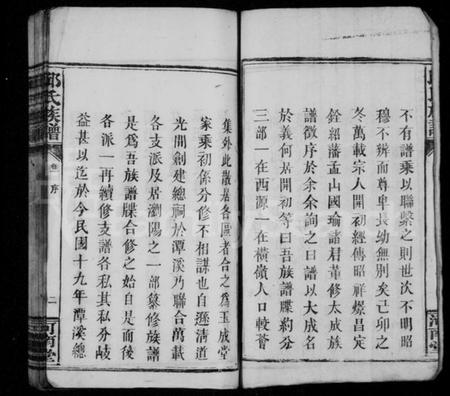 不有譜乘以聯繫之則世次不明昭
穆不辨而尊卑長幼無別矣己卯之
冬萬載宗人開初經傳昭祥燦昌定
銓紹藩孟山國瑜諸君葺修太成族
譜徵序於余余詢之曰譜以大成名
於義何居開初等曰吾族譜牒約分
三部一在西源一在橫嶺人口較蕃
集外此散居各區者合之爲玉成堂
家乘初係分修不相謀也自遜清道
光間創建總祠於潭溪乃聯合萬載
各支派及居瀏陽之一部纂修族譜
是爲吾族譜牒合修之始自是而後
各派一再續修支譜各私其私分岐
益甚以迄於今民國十九年潭溪總
邱氏族譜
卷 序
二
河南堂